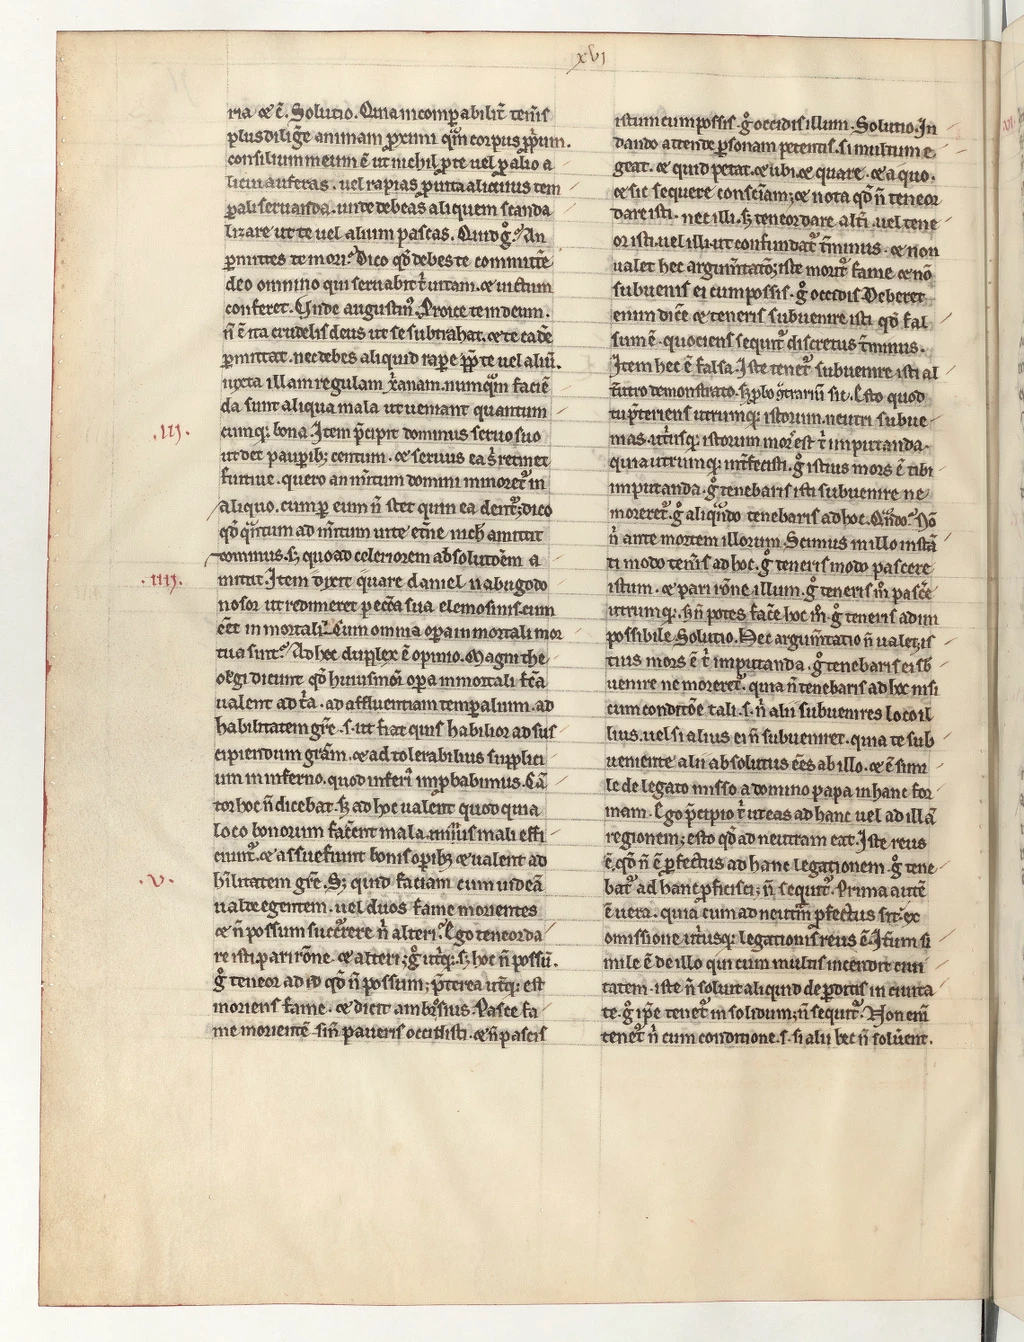 xvi
ria ⁊ c̄. Solutio. Quia incomꝑabilit̄ teneris
plus diliḡe animam ꝓximi qm̄ corpus ꝓpriū.
consilium meum ē ut nichil ꝑ te uel ꝑ alio a
licui auferas. uel rapias ꝑ uita alicuius tem
ꝑali seruanda. unde debeas aliquem scanda
lizare ut te uel alium pascas. Quid g̊? An
ꝑmittes te mori? Dico qd̄ debes te committē
deo omnino qui seruabit t̄ uitam. ⁊ uictum
conferet. Unde augustin᷒. Proice te in deum.
n̄ ē ita crudelis deus ut se subtrahat. ⁊ te cadē
ꝑmittat. nec debes aliquid raꝑe ꝓpter te uel aliū.
iuxta illam regulam xr̄anam. numqm̄ faciē
da sunt aliqua mala ut ueniant quantum
cumqꝫ bona. Item p̄cipit dominus seruo suo
.iij.
ut det pauꝑibꝫ centum. ⁊ seruus ea s̄ retinet
furtiue. quero an meritum domini minoret᷒ in
aliquo. cum ꝑ eum n̄ stet quin ea dent᷒; dico
qd̄ quantum ad meritum uite et̄ne nich̄ amittit
dominus. sꝫ quo ad celeriorem absolutōem a
mittit. Item dixit quare daniel nabugodo
.iiij.
nosor ut redimeret peccata sua elemosinis. cum
eēt in mortali. Cum omnia oꝑa in mortali mor
tua sint? Ad hoc duplex ē opinio. Magni the
ologi dicunt qd̄ huiusmōi oꝑa in mortali fc̄a
ualent ad t̄ria. ad affluentiam temꝑalium. ad
habilitatem gr̄e. s. ut fiat quis habilior ad sus
cipiendum grām. ⁊ ad tolerabilius supplici
um in inferno. quod inferi᷒ improbabimus. Cā
tor hoc n̄ dicebat. sꝫ ad hoc ualent quod quia
loco bonorum facerent mala. minus mali effi
ciunt᷒. ⁊ assuefiunt bonis oꝑibꝫ ⁊ ualent ad
habilitatem gr̄e. Sꝫ quid faciam cum uideā
.v.
ualde egentem. uel duos fame morientes
⁊ n̄ possum succurrere n̄ alteri? Ego teneor da
re isti pari rōne ⁊ alteri; g̊ utriqꝫ. sꝫ hoc n̄ possū.
g̊ teneor ad id qd̄ n̄ possum; p̄terea uterqꝫ est
moriens fame. ⁊ dicit ambrosius. Pasce fa
me morientē. sin̄ paueris occidisti. ⁊ n̄ pascis
istum cum possis. g̊ occidis illum. Solutio. In
dando attende ꝑsonam petentis. si multum e
geat. ⁊ quid petat. ⁊ ubi. ⁊ quare. ⁊ a quo.
⁊ sic sequere consciam; ⁊ nota qd̄ n̄ teneor
dare isti. nec illi. sꝫ teneor dare alt̄i. uel tene
or isti. uel illi. ut confundat᷒ t̄minus. ⁊ non
ualet hec argumtatō; iste morit᷒ fame ⁊ nō
subuenis ei cum possis. g̊ occidis. Deberet
enim dicē ⁊ teneris subuenire isti qd̄ fal
sum ē. quociens sequit᷒ discretus t̄minus.
Item hec ē falsa. Iste tenet᷒ subuenire isti al
tero demonstrato. sꝫ probo contrariū sic. Esto quod
tu p̄teriens utrumqꝫ istorum. neutri subue
nias. utriusqꝫ istorum mors est t̄ imputanda.
quia utrumqꝫ int̄fecisti. g̊ istius mors ē tibi
imputanda. g̊ tenebaris isti subuenire ne
moreret᷒. g̊ aliqn̄do tenebaris ad hoc. Qn̄do? Nō
n̄ ante mortem illorum. Scimus in illo instā
ti modo teneris ad hoc. g̊ teneris modo pascere
istum. ⁊ pari rōne illum. g̊ teneris m̊ pascē
utrumqꝫ. sꝫ n̄ potes facē hoc m̊. g̊ teneris ad im
possibile. Solutio. Hec argumtatio n̄ ualet; is
tius mors ē t̄ imputanda. g̊ tenebaris ei sb̄
uenire ne moreret᷒. quia n̄ tenebaris ad hoc nisi
cum conditōe tali. s. n̄ alii subuenires loco il
lius. uel si alius ei n̄ subueniret. quia te sub
ueniente alii absolutus eēs ab illo. ⁊ ē simi
le de legato misso a domino papa in hanc for
mam. Ego p̄cipio t̄ ut eas ad hanc uel ad illā
regionem; esto qd̄ ad neutram eat. Iste reus
ē. qd̄ n̄ ē ꝓfectus ad hanc legationem. g̊ tene
bat᷒ ad hanc ꝓficisci; n̄ sequit᷒. Prima autē
ē uera. quia cum ad neutrā ꝓfectus sit. ex
omissione utriusqꝫ legationis reus ē. Itum si
mile ē de illo qui cum multis incendit ciui
tatem. iste n̄ soluit aliquid de ꝑditis in ciuita
te. g̊ ipse tenet᷒ in solidum; n̄ sequit᷒. Non enī
tenet᷒ n̄ cum conditione. s. si alii hec n̄ soluerent.